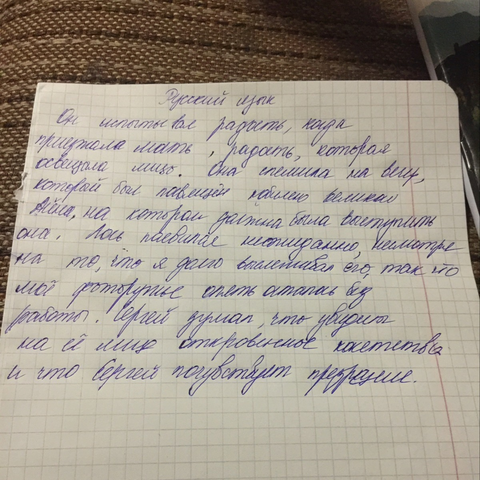 Русский язык
Он испытывал радость, когда
приезжала мать, радость, которая
освещала лицо. Она спешила на вечер,
который был посвящён юбилею великой
на котором должна была выступить
она. Лось появился неожиданно, несмотря
на то, что я долго выслеживал его, так что
моё фоторужьё опять осталось без
работы. Сергей думал, что увидит
на её лице откровенное кокетство
и что Сергей почувствует презрение.